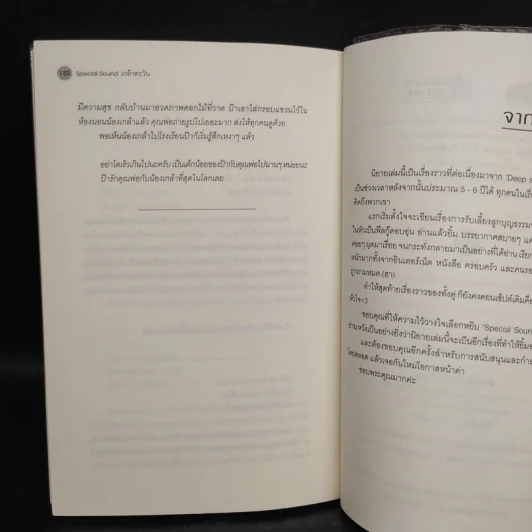 132 Special Sound เกล้าตะวัน
มีความสุข กลับบ้านมาอวดภาพดอกไม้ที่วาด ป๊าเอาใส่กรอบแขวนไว้ใน
ห้องนอนน้องเกล้าแล้ว คุณพ่อถ่ายรูปไปเยอะมาก ส่งให้ทุกคนดูด้วย
พอเห็นน้องเกล้าไปโรงเรียนป๊าก็เริ่มรู้สึกเหงาๆ แล้ว
อย่าโตเร็วเกินไปนะครับ เป็นเด็กน้อยของป๊ากับคุณพ่อไปนานๆ หน่อยนะ
ป๊ารักคุณพ่อกับน้องเกล้าที่สุดในโลกเลย
จาก
นิยายเล่มนี้เป็นเรื่องราวที่ต่อเนื่องมาจาก 'Deep s
เป็นช่วงเวลาหลังจากนั้นประมาณ 5 - 6 ปีได้ ทุกคนในเรื่
คิดถึงพวกเขา
แรกเริ่มตั้งใจจะเขียนเรื่องการรับเลี้ยงลูกบุญธรรม
ในหัวเป็นฟีลกู๊ดอบอุ่น อ่านแล้วยิ้ม บรรยากาศสบายๆ แต่
ค่อยๆ ผุดมาเรื่อย จนกระทั่งกลายมาเป็นอย่างที่ได้อ่าน เรียก
หนักมากทั้งจากอินเตอร์เน็ต หนังสือ ครอบครัว และคนรอ
ถูกถามหมด (ฮา)
ทำให้สุดท้ายเรื่องราวของทั้งคู่ ก็ยังคงคอนเซ็ปต์เดิมคือ
หัวใจ<3
ขอบคุณที่ให้ความไว้วางใจเลือกหยิบ 'Special Soun
ร่านหวังเป็นอย่างยิ่งว่านิยายเล่มนี้จะเป็นอีกเรื่องที่ทำให้ยิ้มอ
และต้องขอบคุณอีกครั้งสำหรับการสนับสนุนและกำล
โดยตลอด แล้วเจอกันใหม่โอกาสหน้าค่า
ขอบพระคุณมากค่ะ